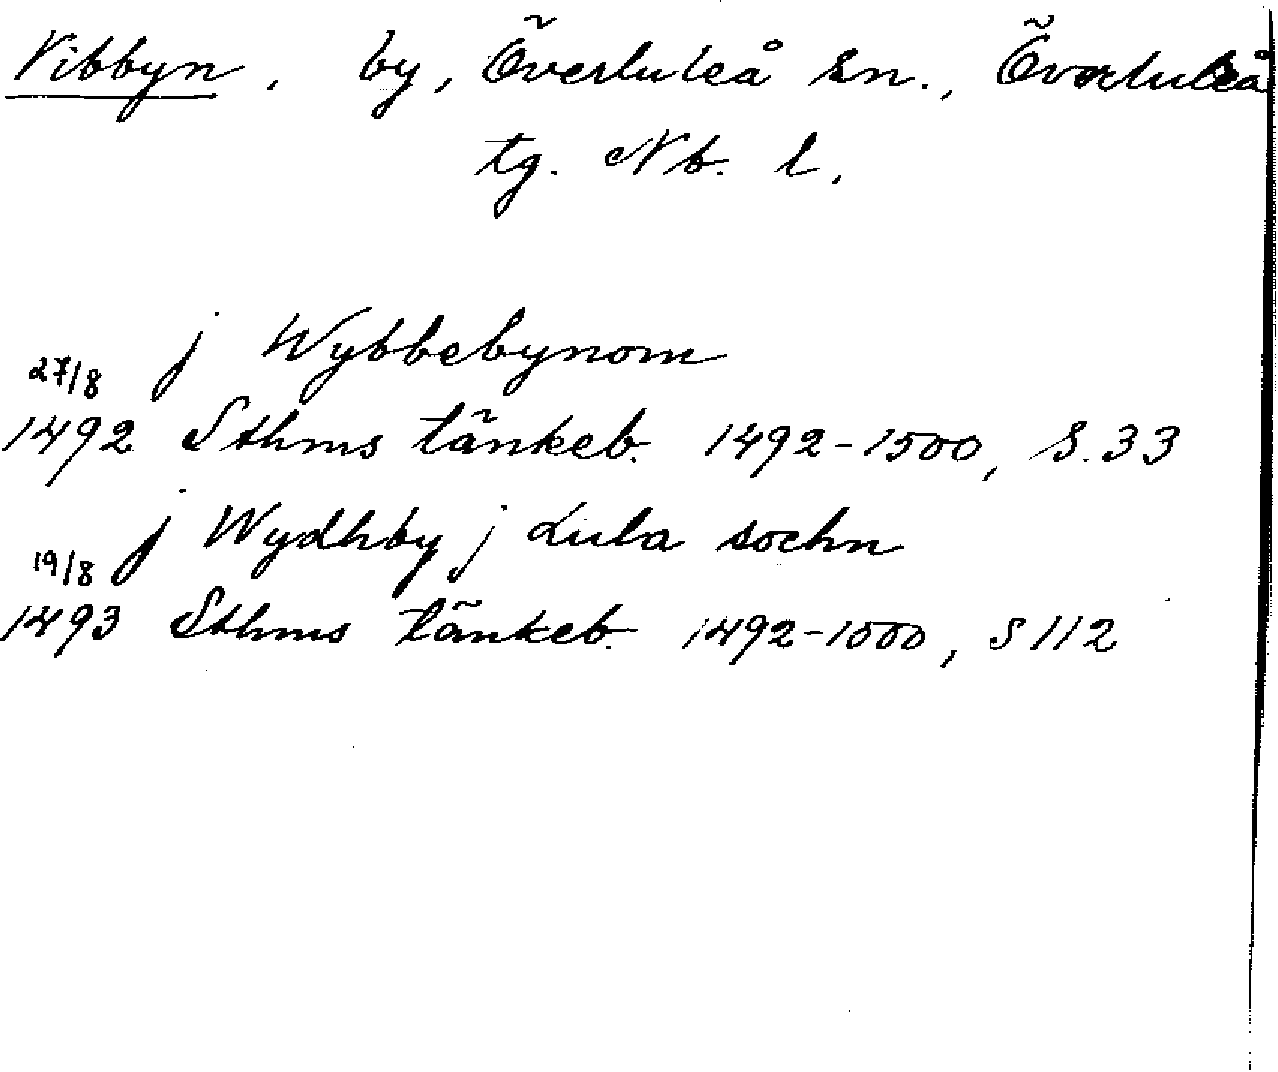 Vibbyn, by, Överluleå sn., Överluleå
tg. Nb. l.
j Wybbebynom
27/8
1492 Sthms tänkeb. 1492-1500, S. 33
j Wydhby j Lula sochn
19/8
1493 Sthms tänkeb. 1492-1500, S 112